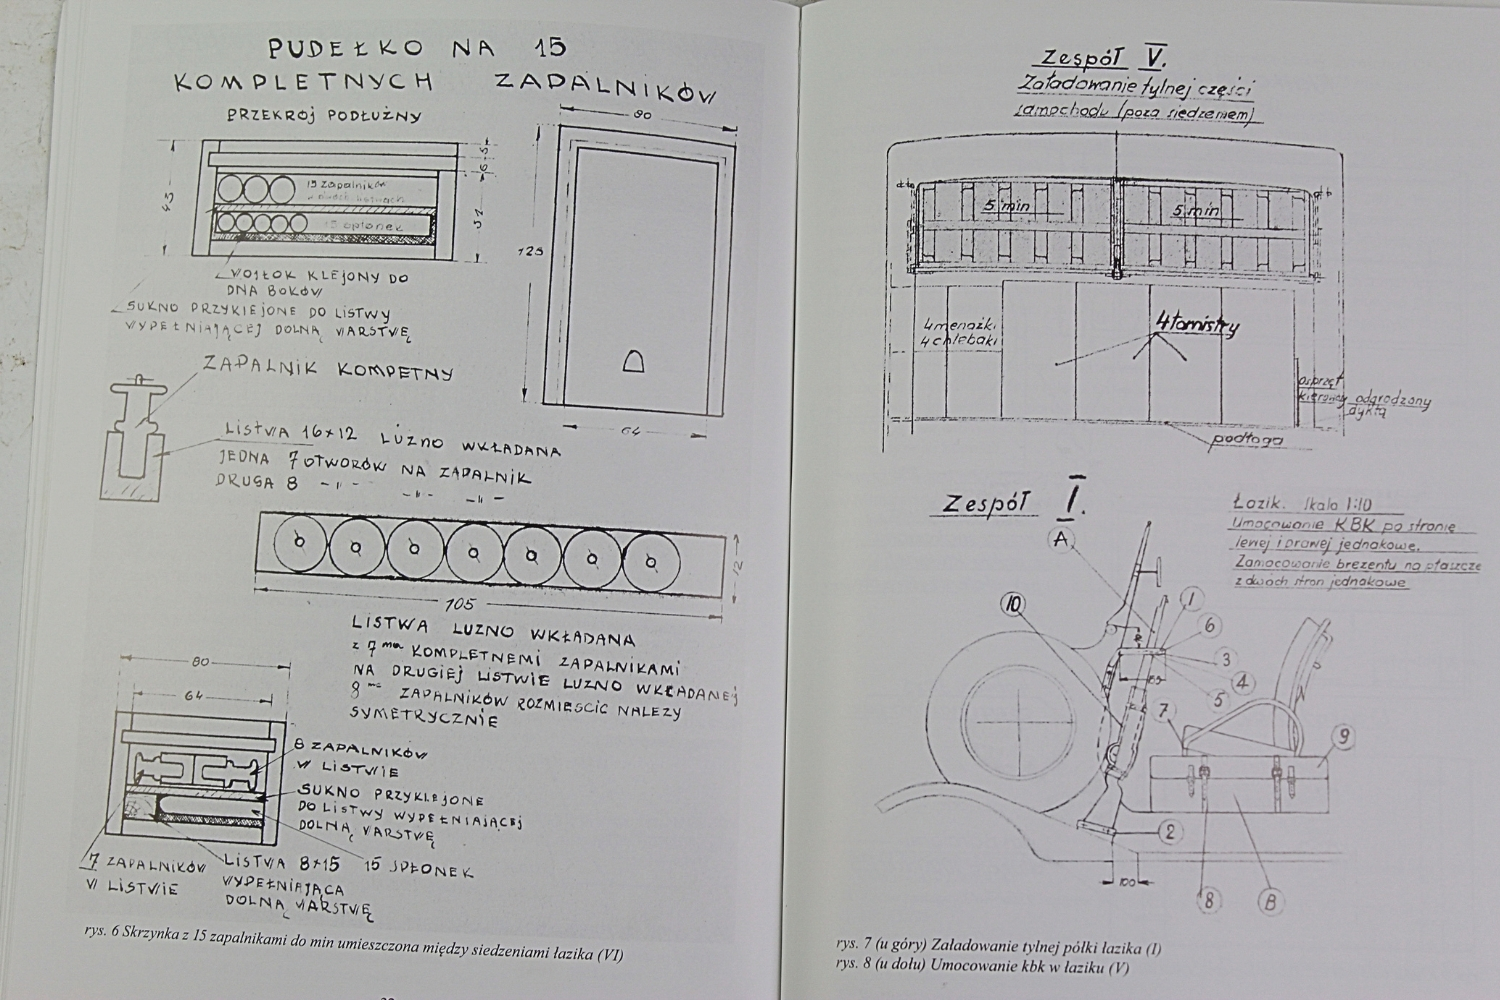 PUDEŁKO NA 15
KOMPLETNYCH ZAPALNIKÓW
PRZEKRÓJ PODŁUŻNY
43
6
5
31
15 zapalników
15 spłonek
WOJŁOK KLEJONY DO
DNA BOKÓW
SUKNO PRZYKLEJONE DO LISTWY
WYPEŁNIAJĄCEJ DOLNĄ WARSTWĘ
90
125
64
ZAPALNIK KOMPETNY
LISTWA 16×12 LUZNO WKŁADANA
JEDNA 7 OTWORÓW NA ZAPALNIK
DRUGA 8 -"- -"- -"-
12
105
LISTWA LUZNO WKŁADANA
z 7ma KOMPLETNEMI ZAPALNIKAMI
NA DRUGIEJ LISTWIE LUZNO WKŁADANEJ
8 ZAPALNIKÓW ROZMIEŚCIC NALEZY
SYMETRYCZNIE
80
64
8 ZAPALNIKÓW
W LISTWIE
SUKNO PRZYKLEJONE
DO LISTWY WYPEŁNIAJĄCEJ
DOLNĄ WARSTWĘ
7 ZAPALNIKÓW
W LISTWIE
LISTWA 8×15
WYPEŁNIAJĄCA
DOLNĄ WARSTWĘ
15 SPŁONEK
rys. 6 Skrzynka z 15 zapalnikami do min umieszczona między siedzeniami łazika (VI)
Zespół V.
Załadowanie tylnej części
samochodu (poza siedzeniem)
5 min
5 min
4 menażki
4 chlebaki
4 tornistry
osprzęt
kierowcy odgrodzony
dyktą
podłoga
Zespół I.
Łazik. Skala 1:10
Umocowanie KBK po stronie
lewej i prawej jednakowe.
Zamocowanie brezentu na płaszcze
z dwóch stron jednakowe
A
10
1
6
3
4
5
7
9
2
100
8
B
rys. 7 (u góry) Załadowanie tylnej półki łazika (I)
rys. 8 (u dołu) Umocowanie kbk w łaziku (V)